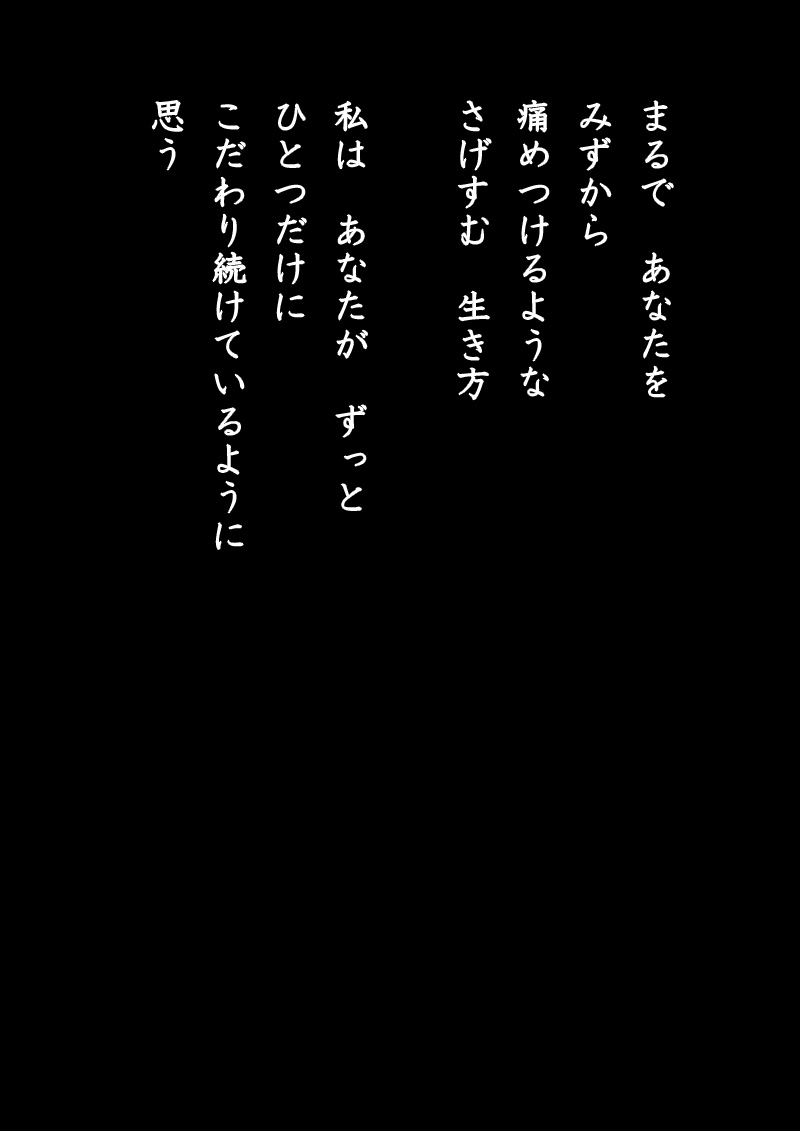 まるで　あなたを
みずから
痛めつけるような
さげすむ　生き方
私は　あなたが　ずっと
ひとつだけに
こだわり続けているように
思う